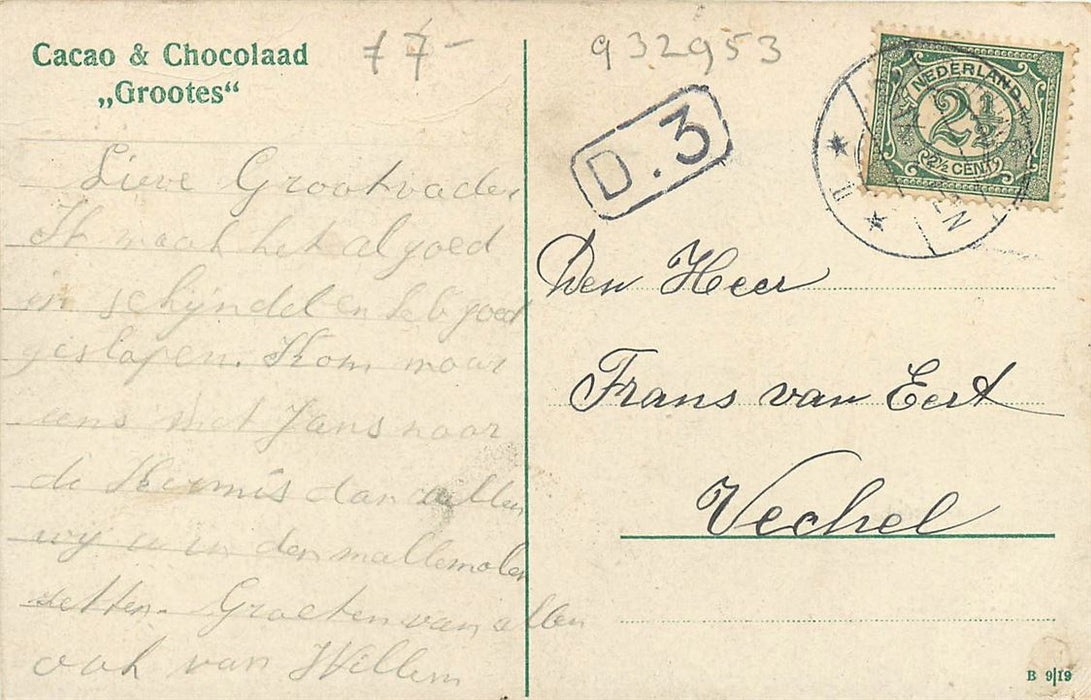 Cacao & Chocolaad
„Grootes“
77-
932953
D.3
NEDERLAND
2½
2½ CENT
Lieve Grootvader
Ik maak het al goed
in schijndel en heb goed
geslapen. Kom maar
eens met Jans naar
de Kermis dan zullen
wij u in den mallemolen
zetten. Groeten van allen
ook van Willem
Den Heer
Frans van Eert
Vechel
B 9|19